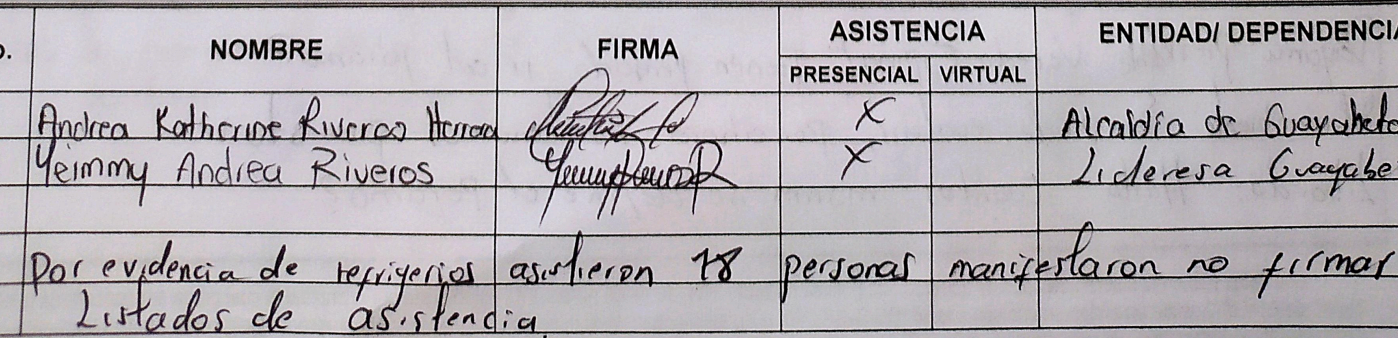 NOMBRE FIRMA ASISTENCIA ENTIDAD/ DEPENDENCIA
PRESENCIAL VIRTUAL
Andrea Katherine Riveros Herrera X Alcaldía de Guayabeta
Yeimmy Andrea Riveros X Lideresa Guayabe
Por evidencia de refrigerios asistieron 18 personas manifestaron no firmar
Listados de asistencia.